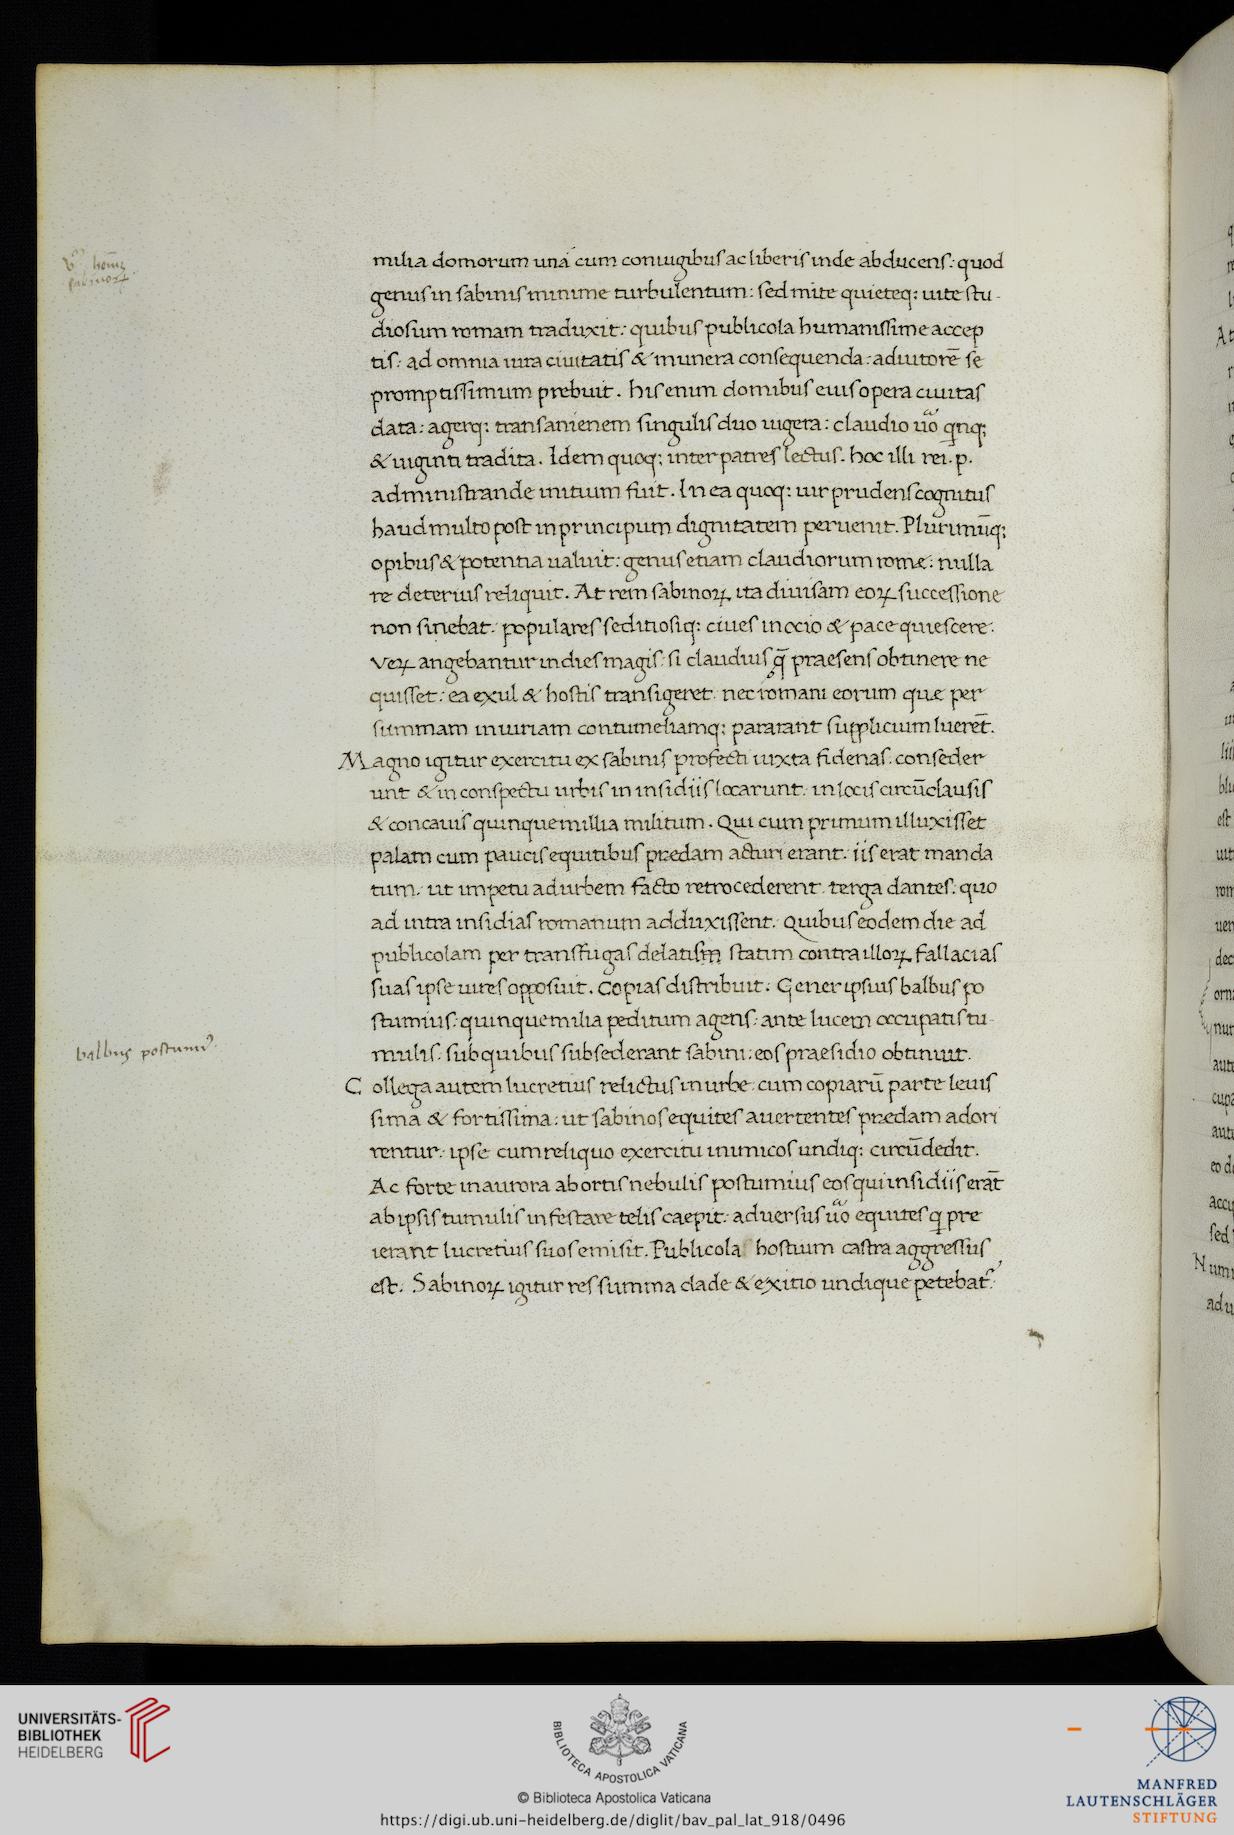 milia domorum una cum coniugibus ac liberis inde abducens: quod
genus in sabinis minime turbulentum: sed mite quieteq; uite stu-
diosum romam traduxit: quibus publicola humanissime accep
tis: ad omnia iura ciuitatis & munera consequenda: adiutorē se
promptissimum prebuit. his enim domibus eius opera ciuitas
data: agerq; trans anienem singulis duo iugera: claudio uͦo qͥnq;
& uiginti tradita. Idem quoq; inter patres lectus. hoc illi rei. p.
administrande initium fuit. In ea quoq; uir prudens cognitus
haud multo post in principum dignitatem peruenit. Plurimūq;
opibus & potentia ualuit: genus etiam claudiorum rome: nulla
re deterius reliquit. At rem sabinoꝝ ita diuisam eoꝝ successione
non sinebat. populares seditiosiq; ciues in ocio & pace quiescere.
Veꝝ angebantur in dies magis: si claudius q̄ praesens obtinere ne
quisset: ea exul & hostis transigeret. nec romani eorum quę per
summam iniuriam contumeliamq; pararant supplicium luerēt.
Magno igitur exercitu ex sabinis profecti iuxta fidenas. conseder
unt & in conspectu urbis in insidiis locarunt. in locis circūclausis
& concauis quinque millia militum. Qui cum primum illuxisset
palam cum paucis equitibus prędam acturi erant. iis erat manda
tum. ut impetu ad urbem facto retrocederent. terga dantes: quo
ad intra insidias romanum adduxissent. Quibus eodem die ad
publicolam per transfugas delatis statim contra illoꝝ fallacias
suas ipse uires opposuit. Copias distribuit. Gener ipsius balbus po
stumius: quinque milia peditum agens: ante lucem occupatis tu-
mulis: sub quibus subsederant sabini: eos praesidio obtinuit.
balbus postumiꝰ
Collega autem lucretius relictus in urbe. cum copiarū parte leuis
sima & fortissima: ut sabinos equites auertentes prędam adori
rentur. ipse cum reliquo exercitu inimicos undiq; circūdedit.
Ac forte in aurora abortis nebulis postumius eos qui insidiis erāt
ab ipsis tumulis infestare telis caepit. aduersus uͦo equites qͥ pre
ierant lucretius suos emisit. Publicola hostium castra aggressus
est. Sabinoꝝ igitur res summa clade & exitio undique petebatᷣ.
UNIVERSITÄTS-
BIBLIOTHEK
HEIDELBERG
BIBLIOTECA APOSTOLICA VATICANA
© Biblioteca Apostolica Vaticana
https://digi.ub.uni-heidelberg.de/diglit/bav_pal_lat_918/0496
MANFRED
LAUTENSCHLÄGER
STIFTUNG